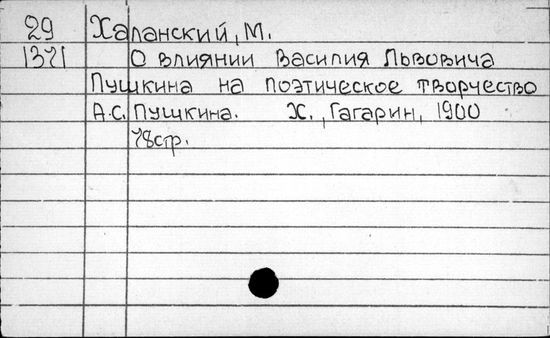 29 Халанский, М.
1371 О влиянии Василия Львовича
Пушкина на поэтическое творчество
А.С. Пушкина. Х., Гагарин, 1900
78стр.